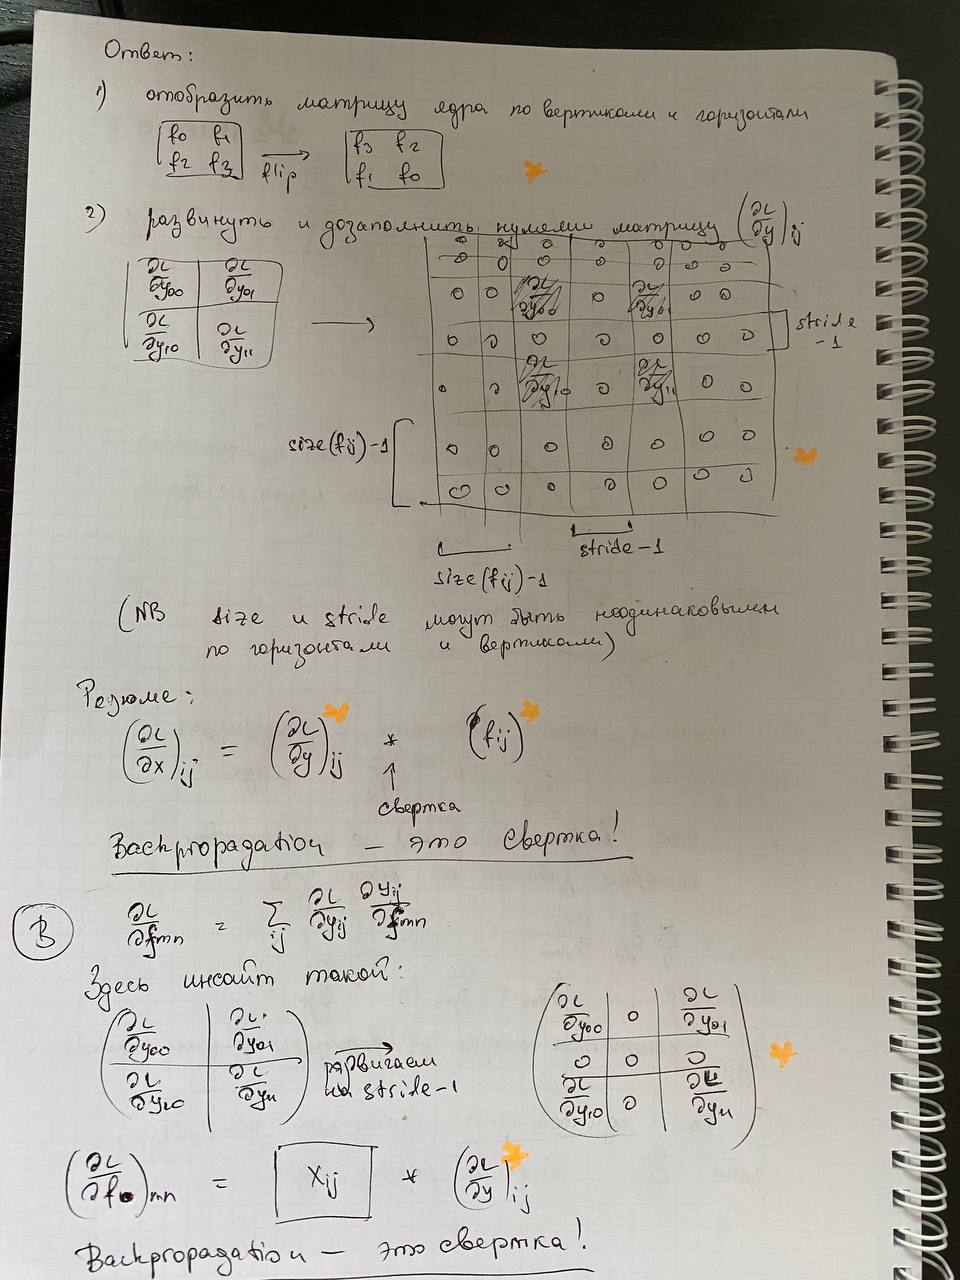 Ответ:
1) отобразить матрицу ядра по вертикали и горизонтали
f₀ f₁ f₃ f₂
f₂ f₃ flip f₁ f₀
2) раздвинуть и дозаполнить нулями матрицу (∂L/∂y)ij
0 0 0 0 0 0 0
0 0 0 0 0 0 0
∂L/∂y₀₀ ∂L/∂y₀₁ → 0 0 ∂L/∂y₀₀ 0 ∂L/∂y₀₁ 0 0
∂L/∂y₁₀ ∂L/∂y₁₁ 0 0 0 0 0 0 0 stride -1
0 0 ∂L/∂y₁₀ 0 ∂L/∂y₁₁ 0 0
size(fij)-1 0 0 0 0 0 0 0
0 0 0 0 0 0 0
stride-1
size(fij)-1
(NB size и stride могут быть неодинаковыми
по горизонтали и вертикали)
Резюме:
(∂L/∂x)ij = (∂L/∂y)ij * (fij)
↑
свертка
Backpropagation — это свертка!
B ∂L/∂fmn = ∑ij ∂L/∂yij ∂yij/∂fmn
Здесь инсайт такой:
∂L/∂y₀₀ ∂L/∂y₀₁ ∂L/∂y₀₀ 0 ∂L/∂y₀₁
раздвигаем 0 0 0
∂L/∂y₁₀ ∂L/∂y₁₁ на stride-1 ∂L/∂y₁₀ 0 ∂L/∂y₁₁
(∂L/∂f)mn = Xij * (∂L/∂y)ij
Backpropagation — это свертка!